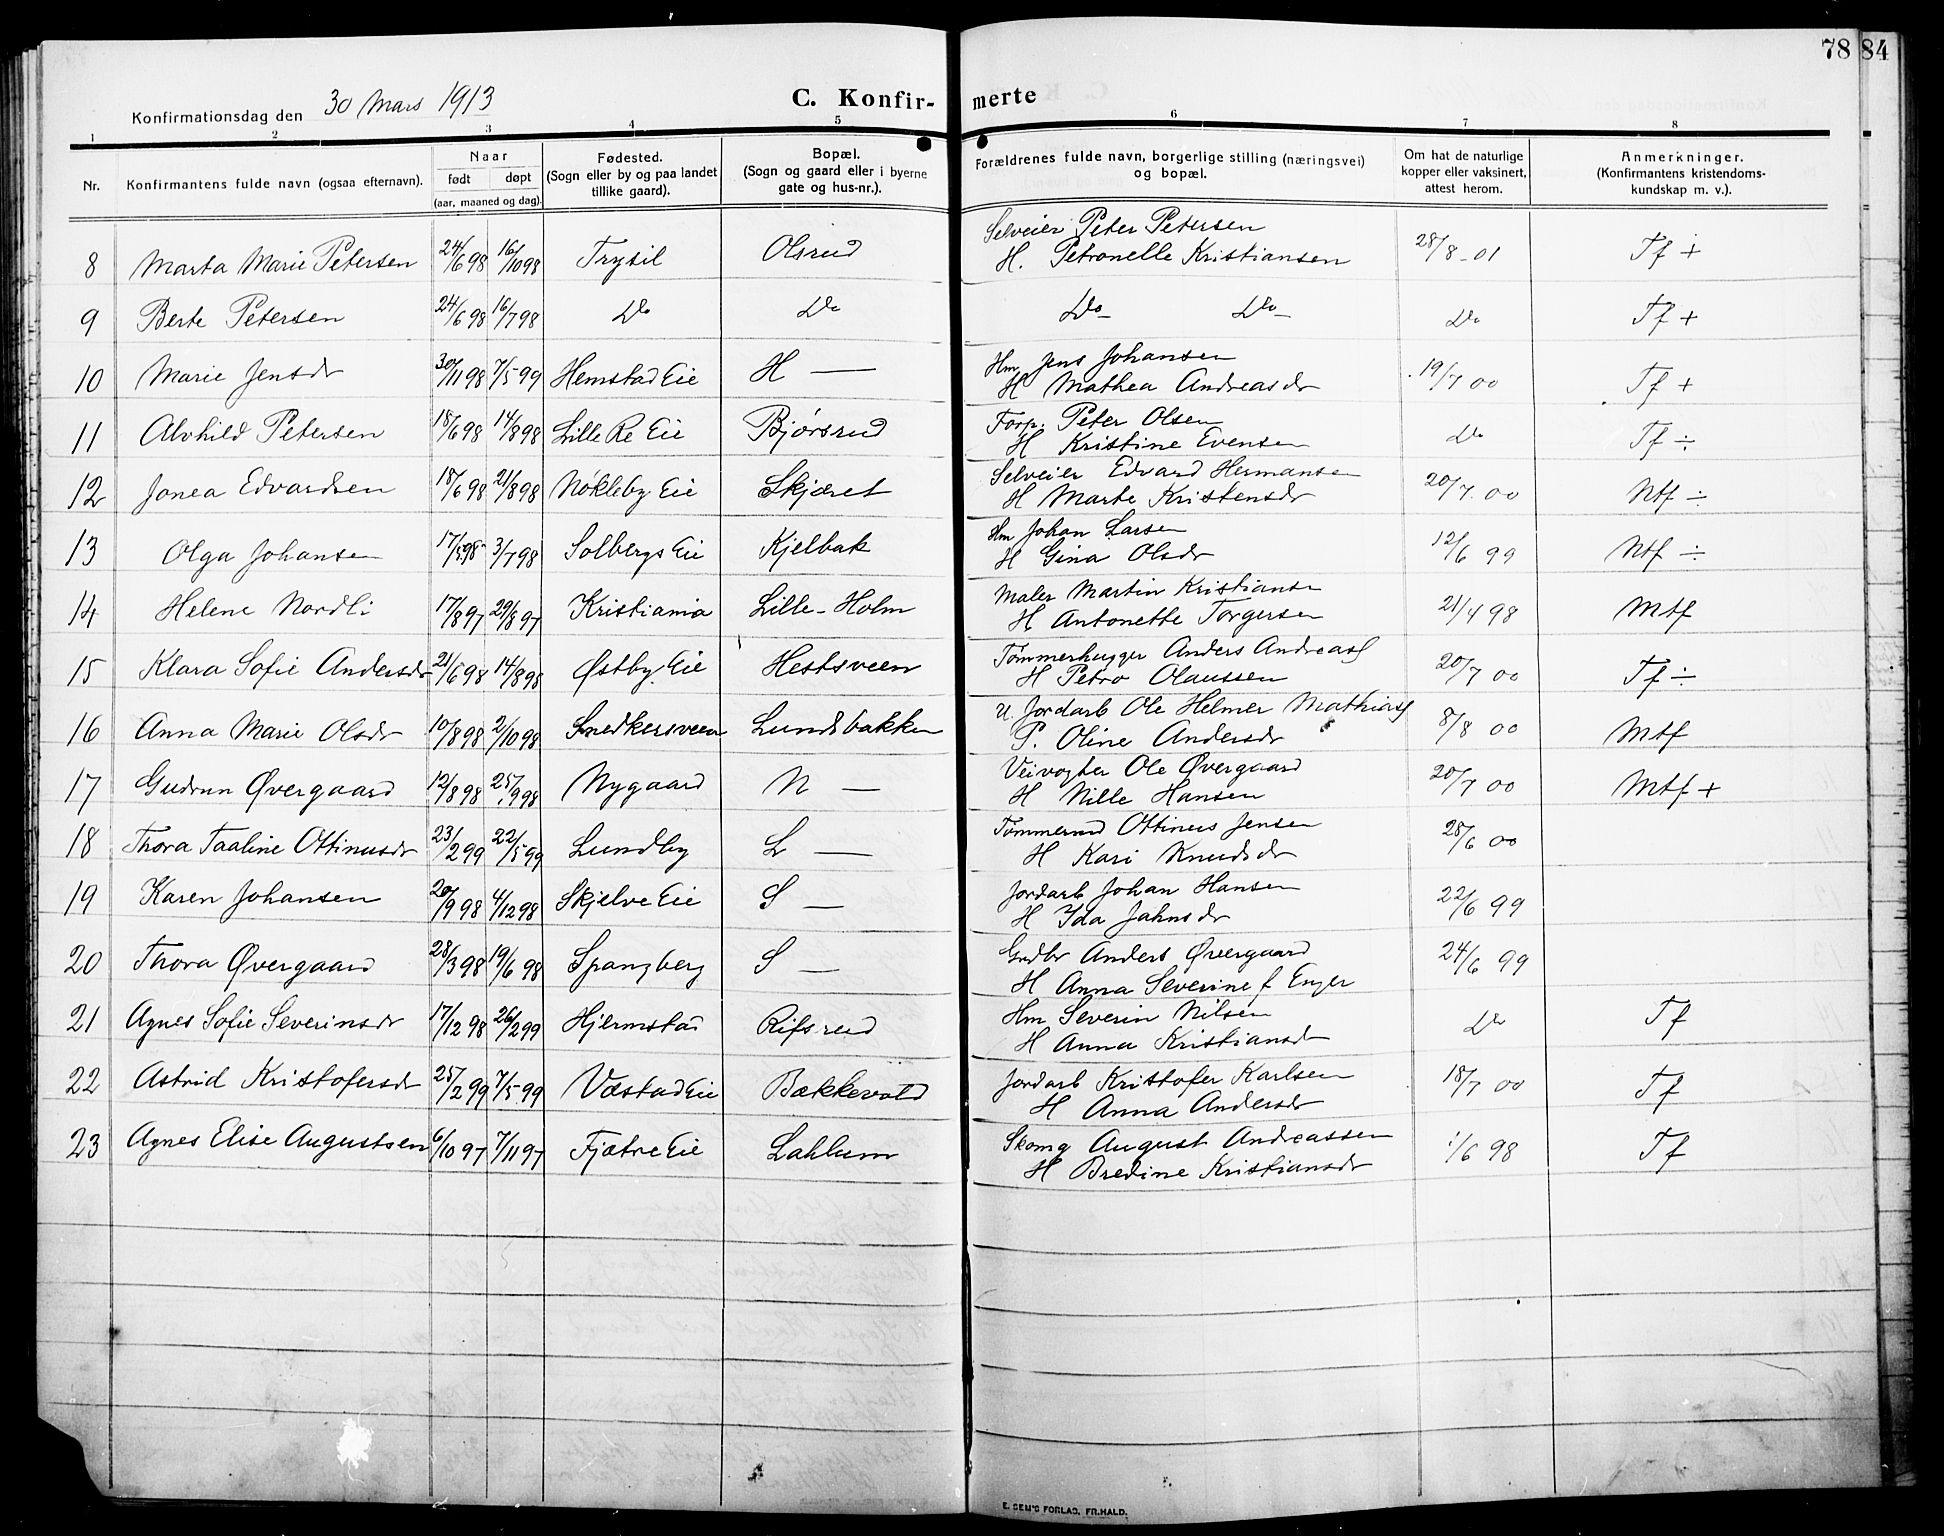 78 84
Konfirmationsdag den 30 Mars 1913 C. Konfir- merte
1 2 3 4 5 6 7 8
Nr. Konfirmantens fulde navn (ogsaa efternavn). Naar født døpt (aar, maaned og dag). Fødested. (Sogn eller by og paa landet tillike gaard). Bopæl. (Sogn og gaard eller i byerne gate og hus-nr.). Forældrenes fulde navn, borgerlige stilling (næringsvei) og bopæl. Om hat de naturlige kopper eller vaksinert, attest herom. Anmerkninger. (Konfirmantens kristendoms-kundskap m. v.).
8 Marta Marie Petersen 24/6 98 16/10 98 Trysil Olsrud Selveier Peter Petersen
H. Petronelle Kristiansen 28/8-01 Tf +
9 Berte Petersen 24/6 98 16/7 98 Do Do Do Do Do Tf +
10 Marie Jensdr 30/11 98 7/5 99 Hemstad Eie H — Hm Jens Johansen
H Mathea Andreasdr 19/7 00 Tf +
11 Alvhild Petersen 18/6 98 14/8 98 Lille Re Eie Bjørsrud Forp. Peter Olsen
H Kristine Evensen Do Tf ÷
12 Jonea Edvardsen 18/6 98 21/8 98 Nøkleby Eie Skjæret Selveier Edvard Hermansen
H Marte Kristensdr 20/7 00 Ntf ÷
13 Olga Johansen 17/5 98 3/7 98 Solbergs Eie Kjelbak Hm Johan Larsen
H Gina Olsdr 12/6 99 Ntf ÷
14 Helene Nordli 17/8 97 29/8 97 Kristiania Lille-Holm Maler Martin Kristiansen
H Antonette Torgersen 21/4 98 Mtf
15 Klara Sofie Andersdr 21/6 98 14/8 98 Østby Eie Hestsveen Tømmerhugger Anders Andreass
H Petro Olaussen 20/7 00 Tf ÷
16 Anna Marie Olsdr 10/8 98 2/10 98 Snedkersveen Lundsbakken U. Jordarb Ole Helmer Mathiass
P. Oline Andersdr 8/8 00 Mtf
17 Gudrun Øvergaard 12/8 98 25/9 98 Nygaard N — Veivogter Ole Øvergaard
H Nille Hansen 20/7 00 Mtf +
18 Thora Taaline Ottinusdr 23/2 99 22/5 99 Lundby L — Tømmermd Ottinus Jensen
H Kari Knudsdr 28/6 00
19 Karen Johansen 20/9 98 4/12 98 Skjelve Eie S — Jordarb Johan Hansen
H Ida Jahnsdr 22/6 99
20 Thora Øvergaard 28/3 98 19/6 98 Spangberg S — Gndbr Anders Øvergaard
H Anna Severine f Enger 24/6 99
21 Agnes Sofie Severinsdr 17/12 98 26/2 99 Hjermstad Rifsrud Hm Severin Nilsen
H Anna Kristiansdr Do Tf
22 Astrid Kristofersdr 25/2 99 7/5 99 Væstad Eie Bækkevold Jordarb Kristofer Karlsen
H Anna Andersdr 18/7 00 Tf
23 Agnes Elise Augustsen 6/10 97 7/11 97 Fjætre Eie Lahlum Skomg August Andreassen
H Bredine Kristiansdr 1/6 98 Tf
E. SEM'S FORLAG, FR.HALD.